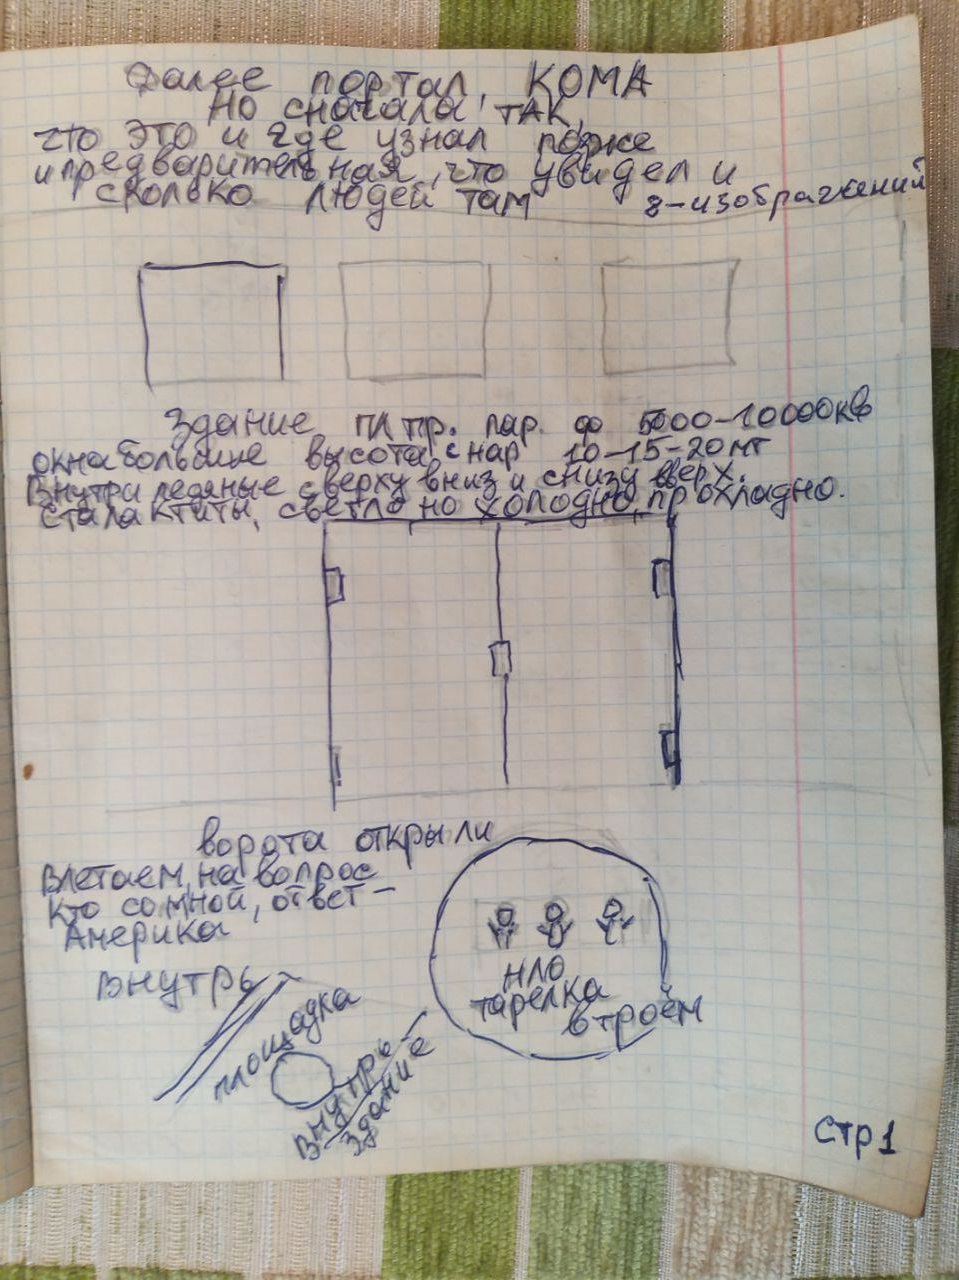 Далее портал, КОМА
Но сначала, ТАК,
что это и где узнал позже
и предварительная, что увидел и
сколько людей там 8-изображений
Здание пл пр. пар. ф 5000-10000кв
окна большие высота с нар 10-15-20 мт
Внутри ледяные сверху вниз и снизу вверх.
сталактиты, светло но холодно, прохладно.
ворота открыли
Влетаем, на вопрос
кто со мной, ответ-
Америка
внутрь
площадка
внутрь
здание
нло
тарелка
втроём
стр 1